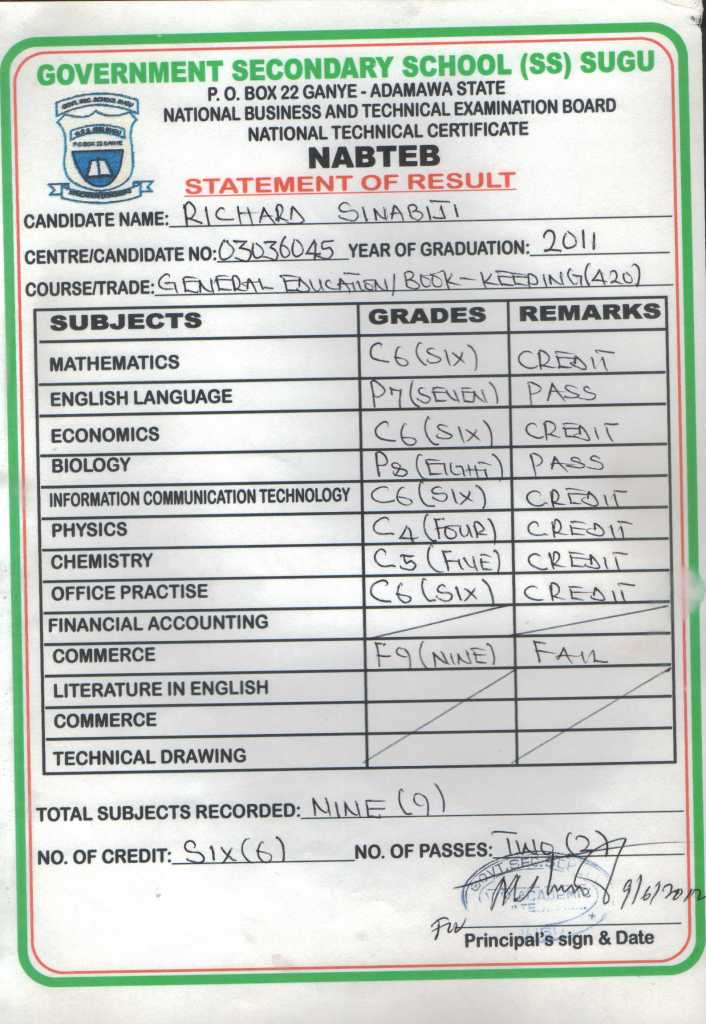 GOVERNMENT SECONDARY SCHOOL (SS) SUGU
P. O. BOX 22 GANYE - ADAMAWA STATE
NATIONAL BUSINESS AND TECHNICAL EXAMINATION BOARD
NATIONAL TECHNICAL CERTIFICATE
NABTEB
STATEMENT OF RESULT
GOVT. SEC. SCHOOL SUGU
P.O BOX 22 GANYE
CANDIDATE NAME: RICHARD SINABIJI
CENTRE/CANDIDATE NO: 03036045 YEAR OF GRADUATION: 2011
COURSE/TRADE: GENERAL EDUCATION/BOOK-KEEPING(420)
SUBJECTS GRADES REMARKS
MATHEMATICS C6 (SIX) CREDIT
ENGLISH LANGUAGE P7 (SEVEN) PASS
ECONOMICS C6 (SIX) CREDIT
BIOLOGY P8 (EIGHT) PASS
INFORMATION COMMUNICATION TECHNOLOGY C6 (SIX) CREDIT
PHYSICS C4 (FOUR) CREDIT
CHEMISTRY C5 (FIVE) CREDIT
OFFICE PRACTISE C6 (SIX) CREDIT
FINANCIAL ACCOUNTING
COMMERCE F9 (NINE) FAIL
LITERATURE IN ENGLISH
COMMERCE
TECHNICAL DRAWING
TOTAL SUBJECTS RECORDED: NINE (9)
NO. OF CREDIT: SIX (6) NO. OF PASSES: TWO (2)
GOVT. SEC. ACADEMIC
9/6/2012
For
Principal's sign & Date